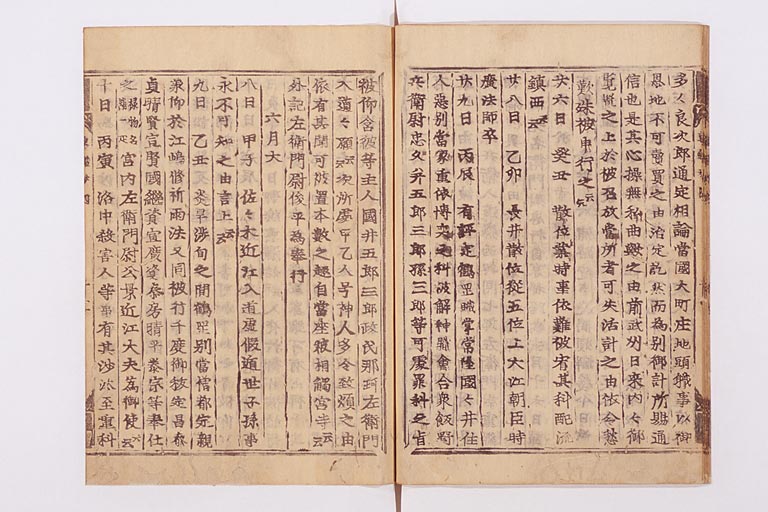 多々良次郎通定相論當國大町庄地頭職事以御
恩地不可賣買之由治定訖然而為別御計所賜通
信也是其心操無私曲歟之由前武州日来内々御
之上於被召放當所者可失活計之由依令愁
歎殊被申行之云々
廿六日 癸丑 散位業時事依難被宥其科配流
鎮西云々
廿八日 乙卯 長井散位従五位上大江朝臣時
廣法師卒
廿九日 丙辰 有評定鶴罡職掌當陸國々井住
人惡別當家重依博奕之科被解神職會合衆飯
兵衛尉忠久井五郎三郎孫三郎等可處罪科之旨
被仰含彼等主人國井五郎三郎政氏那珂左衛門
入道々願云々次所處甲乙人号神人多令致煩之由
依有其聞可被置本數之趣自當座被相觸宮寺云々
外記左衛門尉俊平為奉行
六月大
八日 甲子 佐々木近江入道虚假遁世子孫事
永不可知之由言上云々
九日 乙丑 炎旱渉旬之間鶴罡別當僧都定親
兼仰於江嶋修祈雨法又同被行千度御祓定昌泰
貞晴賢宣賢國継資宣廣資泰房晴平泰宗等奉仕
之宮内左衛門尉公景近江大夫為御使云々
十日 丙寅 洛中殺害人等事有其沙汰至重科